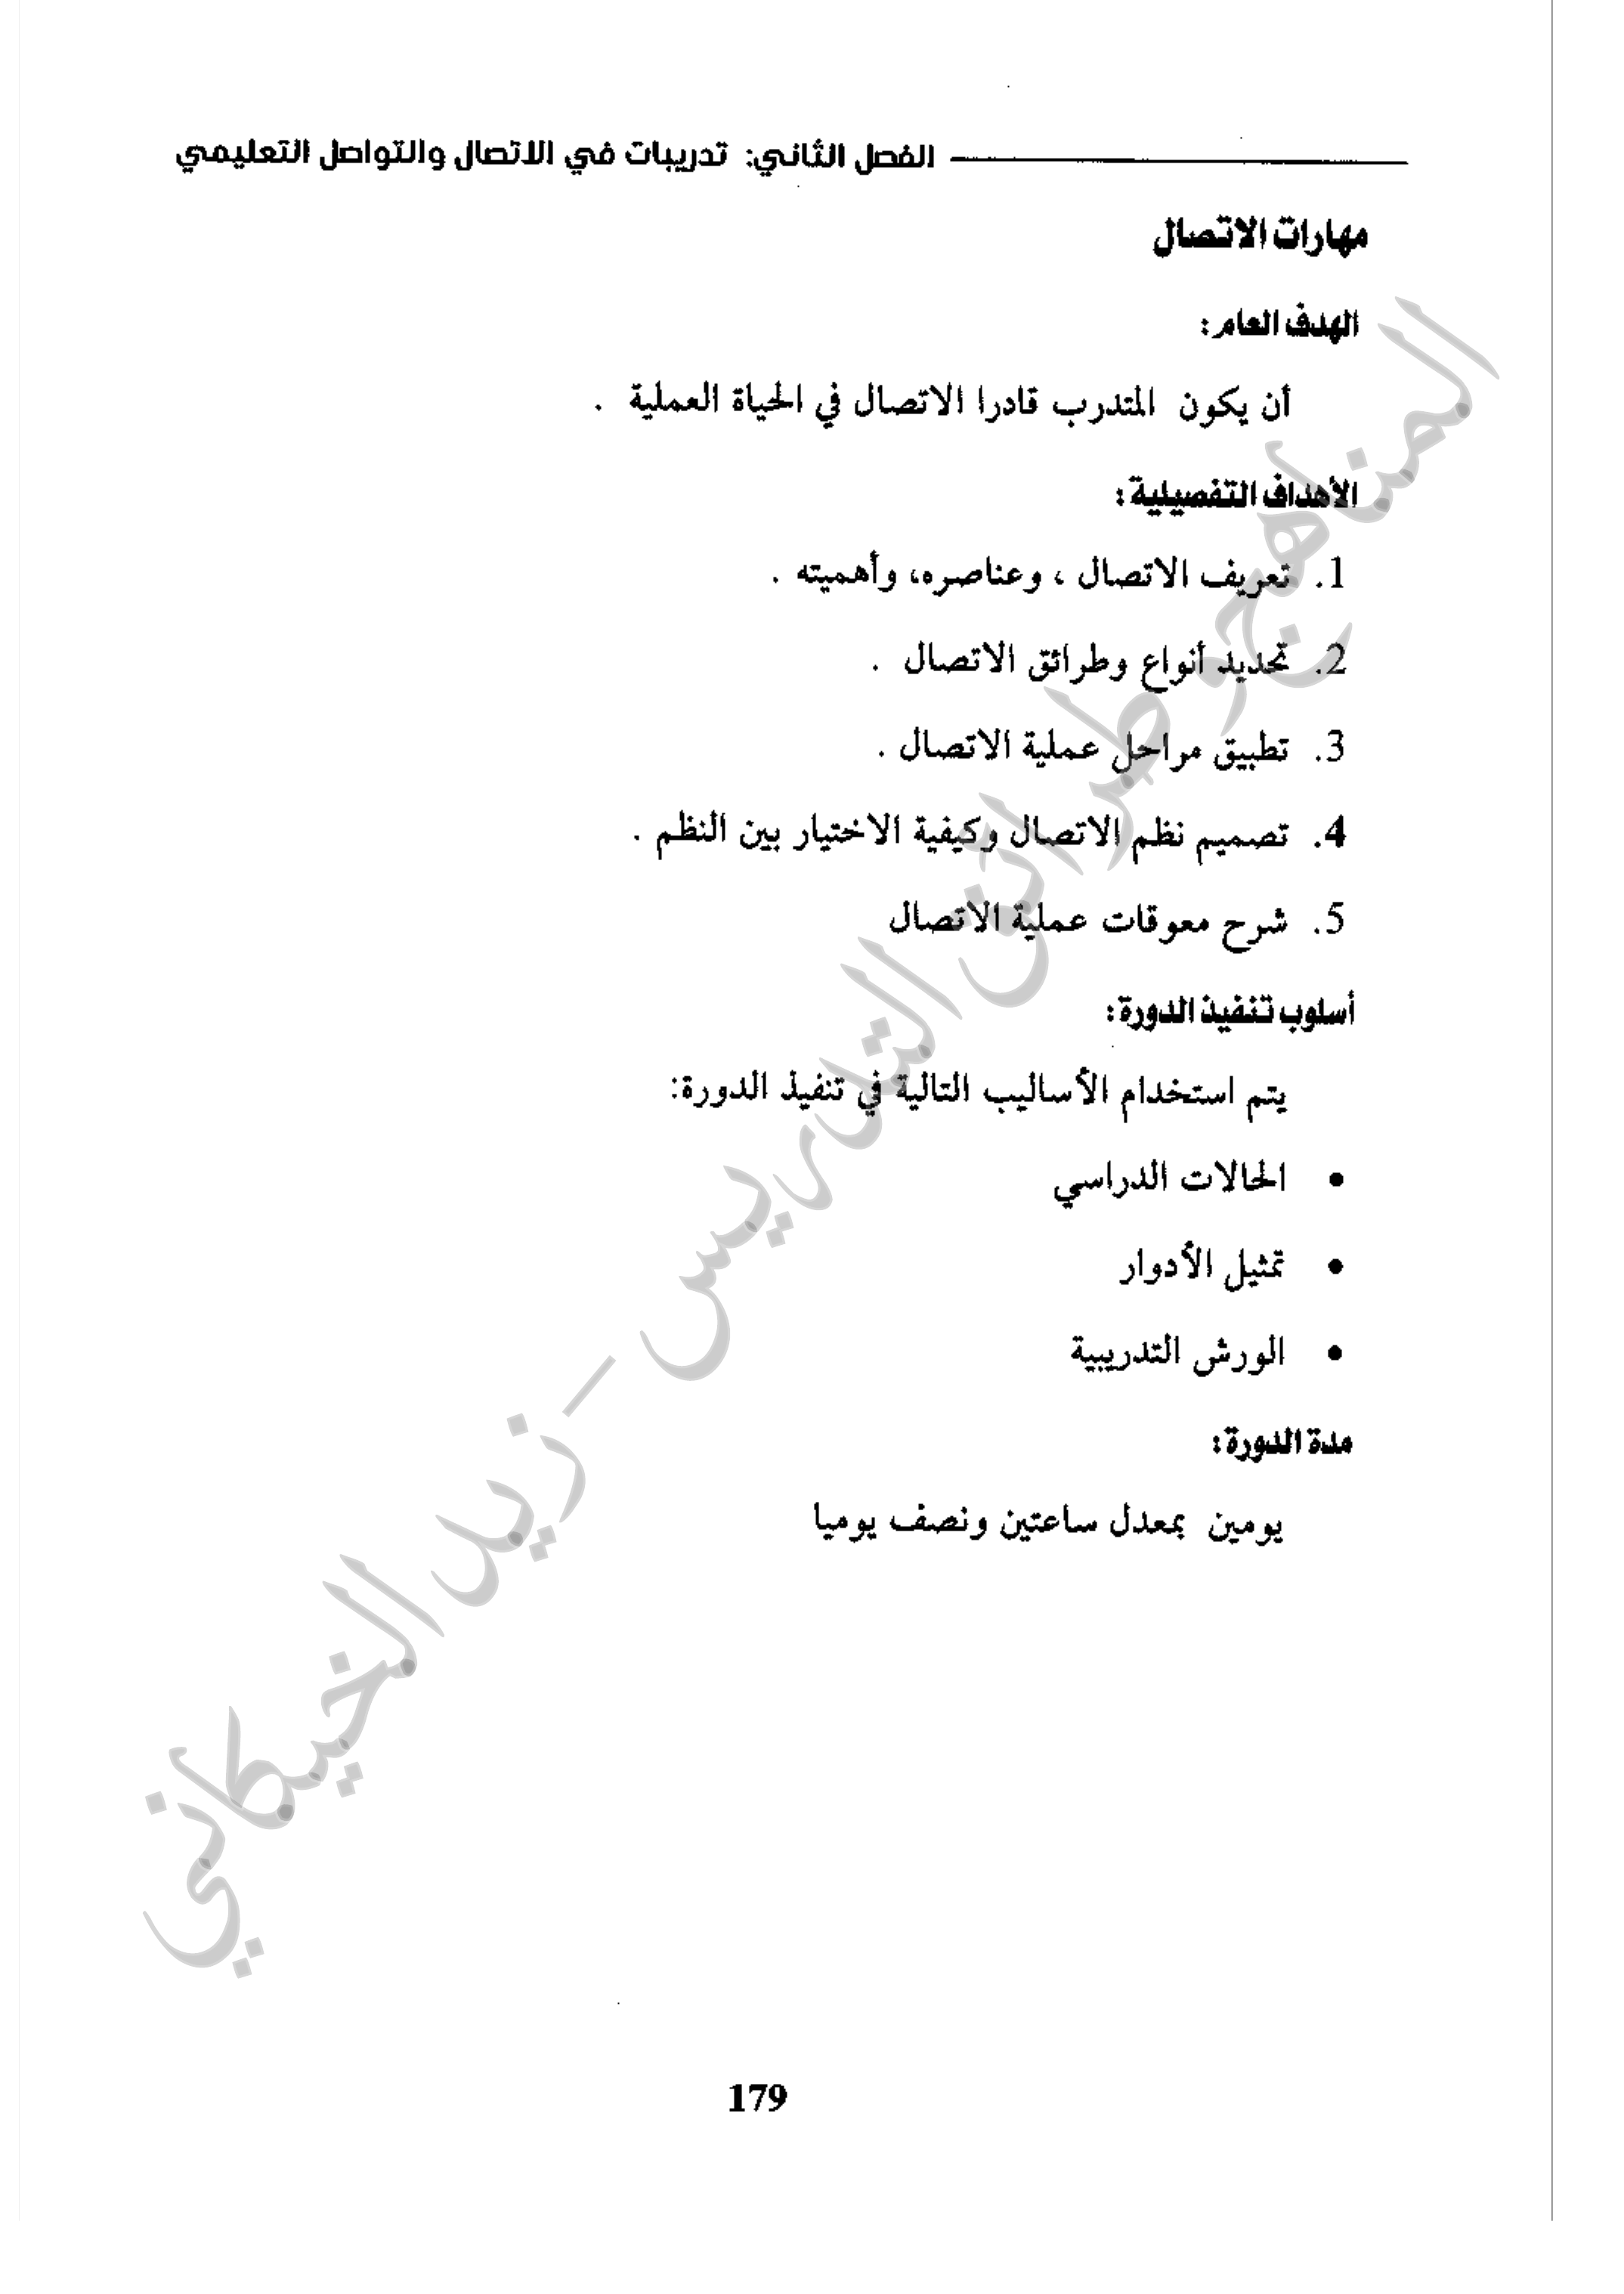 الفصل الثاني: تدريبات في الاتصال والتواصل التعليمي
مهارات الاتصال
الهدف العام:
أن يكون المتدرب قادرا الاتصال في الحياة العملية .
الأهداف التفصيلية:
1. تعريف الاتصال ، وعناصره، وأهميته .
2. تحديد أنواع وطرائق الاتصال .
3. تطبيق مراحل عملية الاتصال .
4. تصميم نظم الاتصال وكيفية الاختيار بين النظم .
5. شرح معوقات عملية الاتصال
أسلوب تنفيذ الدورة:
يتم استخدام الأساليب التالية في تنفيذ الدورة:
• الحالات الدراسي
• تمثيل الأدوار
• الورش التدريبية
مدة الدورة:
يومين بمعدل ساعتين ونصف يوميا
المناهج وطرائق التدريس - زيد الخيكاني
179